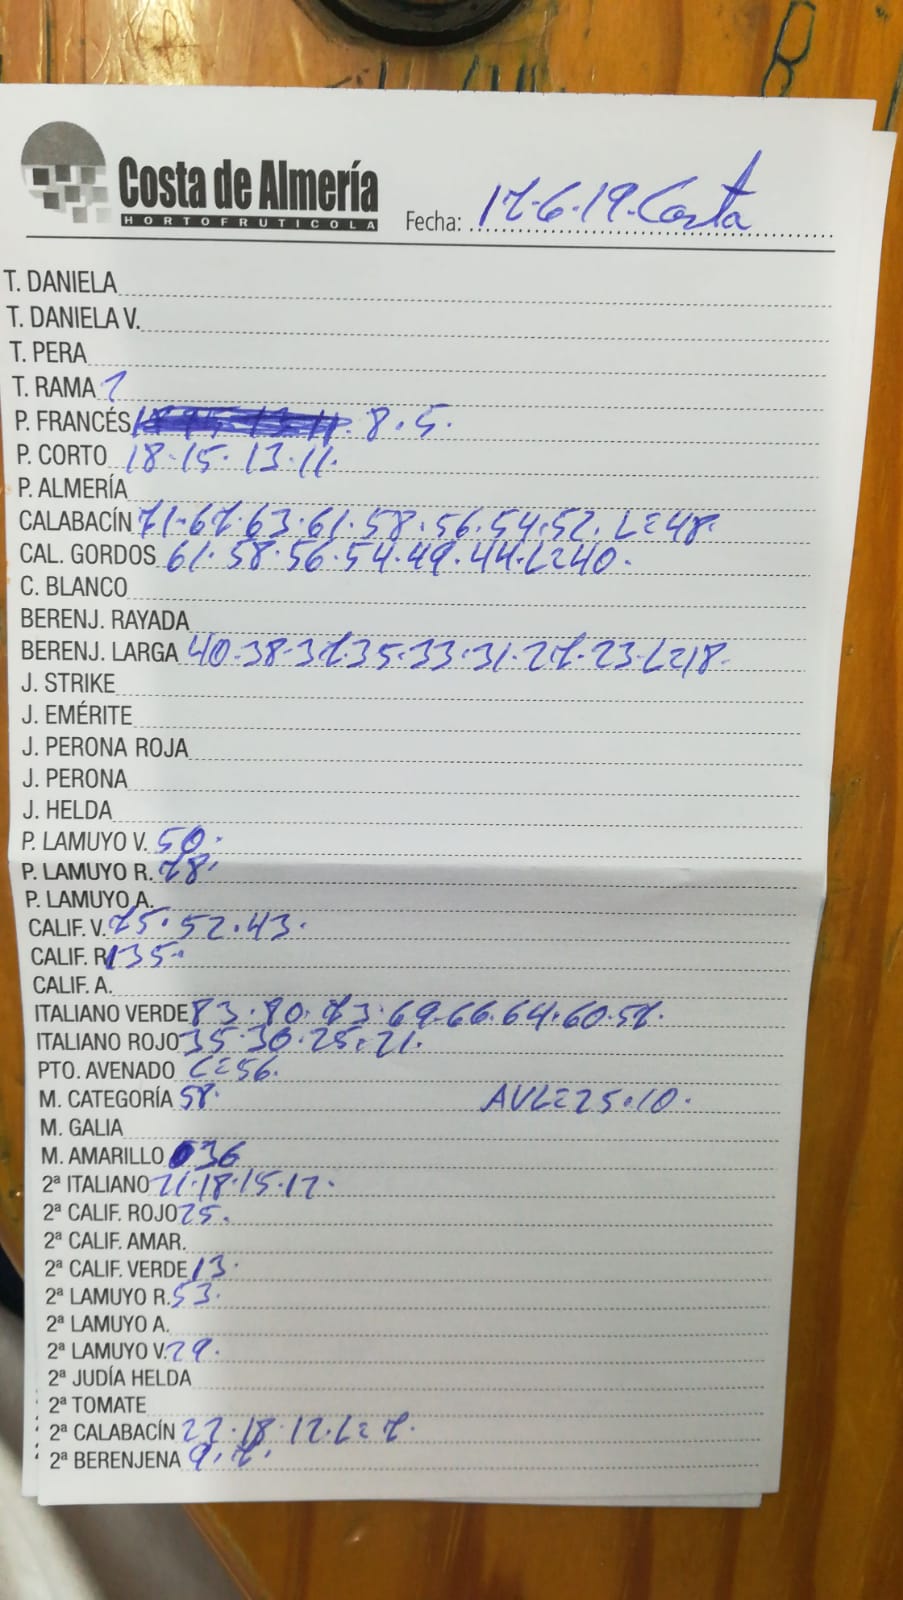 Costa de Almería
HORTOFRUTICOLA
Fecha: 17-6-19. Costa
T. DANIELA
T. DANIELA V.
T. PERA
T. RAMA
P. FRANCÉS 8.5.
P. CORTO 18.15.13.11.
P. ALMERÍA
CALABACÍN 71-67.63.61.58.56.54.52. L=48.
CAL. GORDOS 61.58.56.54.49.44.L=40.
C. BLANCO
BERENJ. RAYADA
BERENJ. LARGA 40.38.37.35.33.31.27.23.L=18.
J. STRIKE
J. EMÉRITE
J. PERONA ROJA
J. PERONA
J. HELDA
P. LAMUYO V. 50.
P. LAMUYO R. 78.
P. LAMUYO A.
CALIF. V. 75.52.43.
CALIF. R 135.
CALIF. A.
ITALIANO VERDE 83.80.73.69.66.64.60.57.
ITALIANO ROJO 35.30.25.21.
PTO. AVENADO L=56.
M. CATEGORÍA 58. AVL=25.10.
M. GALIA
M. AMARILLO 36
2ª ITALIANO 21.18.15.12.
2ª CALIF. ROJO 25.
2ª CALIF. AMAR.
2ª CALIF. VERDE 13.
2ª LAMUYO R. 53.
2ª LAMUYO A.
2ª LAMUYO V. 29.
2ª JUDÍA HELDA
2ª TOMATE
2ª CALABACÍN 23.18.12.L=7.
2ª BERENJENA 9.7.